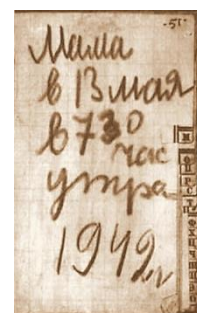 Мама
в 13 мая
в 730
час
утра
1942 г